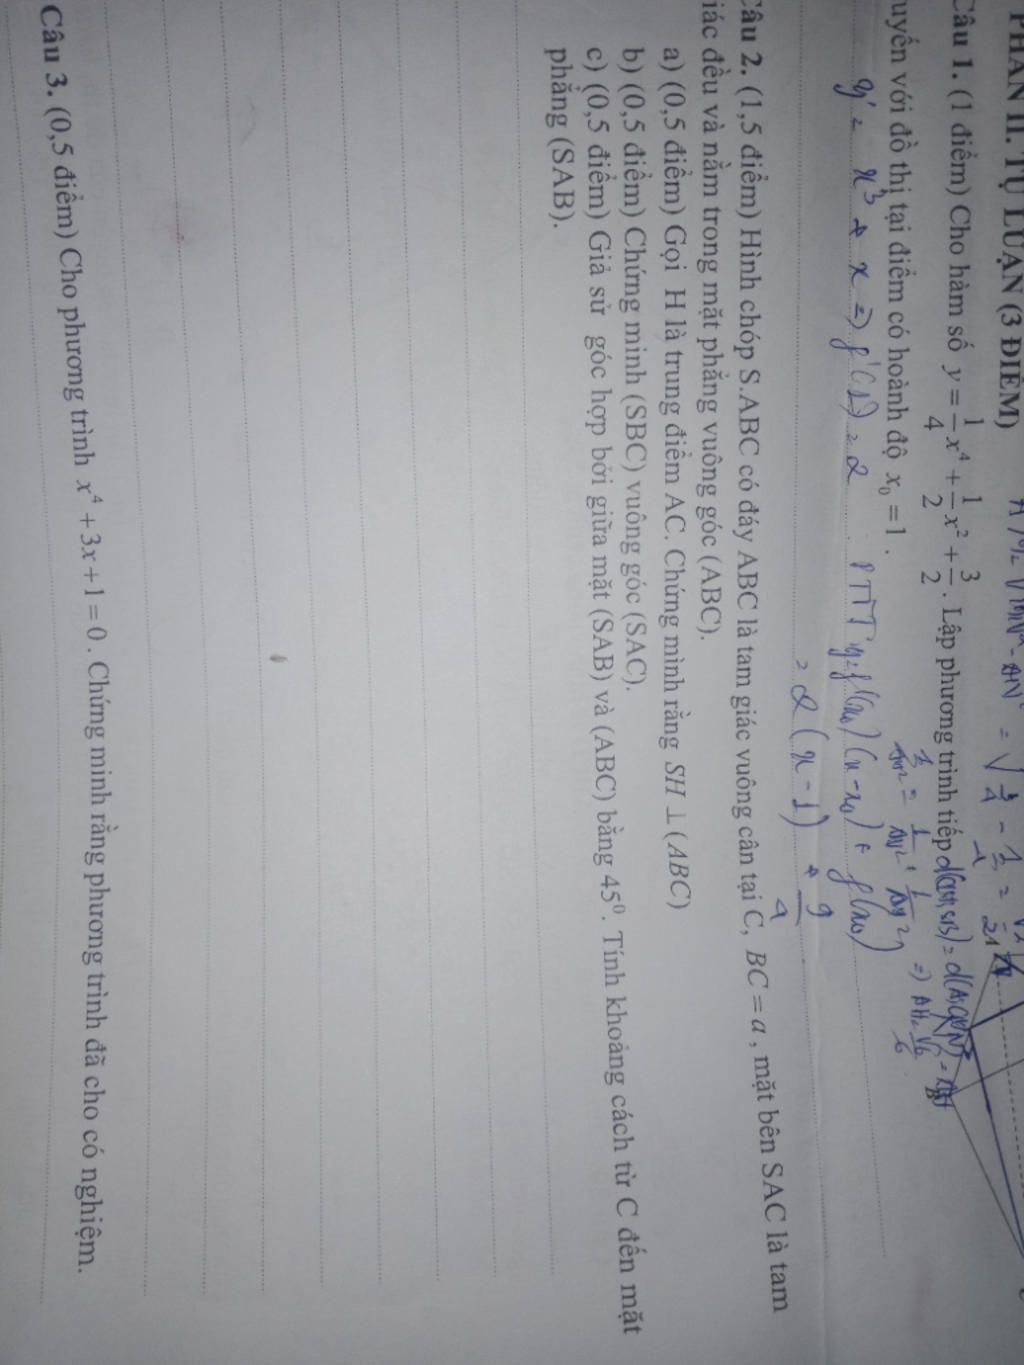 PHẦN II. TỰ LUẬN (3 ĐIỂM)
Câu 1. (1 điểm) Cho hàm số y = 1/4 x⁴ + 1/2 x² + 3/2. Lập phương trình tiếp
uyến với đồ thị tại điểm có hoành độ x₀ = 1.
y' = x³ + x => y'(1) = 2 PTTT y = f'(x₀)(x-x₀) + f(x₀)
= 2(x-1) + 9/4
Câu 2. (1,5 điểm) Hình chóp S.ABC có đáy ABC là tam giác vuông cân tại C, BC = a, mặt bên SAC là tam
iác đều và nằm trong mặt phẳng vuông góc (ABC).
a) (0,5 điểm) Gọi H là trung điểm AC. Chứng mình rằng SH ⊥ (ABC)
b) (0,5 điểm) Chứng minh (SBC) vuông góc (SAC).
c) (0,5 điểm) Giả sử góc hợp bởi giữa mặt (SAB) và (ABC) bằng 45⁰. Tính khoảng cách từ C đến mặt
phẳng (SAB).
Câu 3. (0,5 điểm) Cho phương trình x⁴ + 3x + 1 = 0. Chứng minh rằng phương trình đã cho có nghiệm.